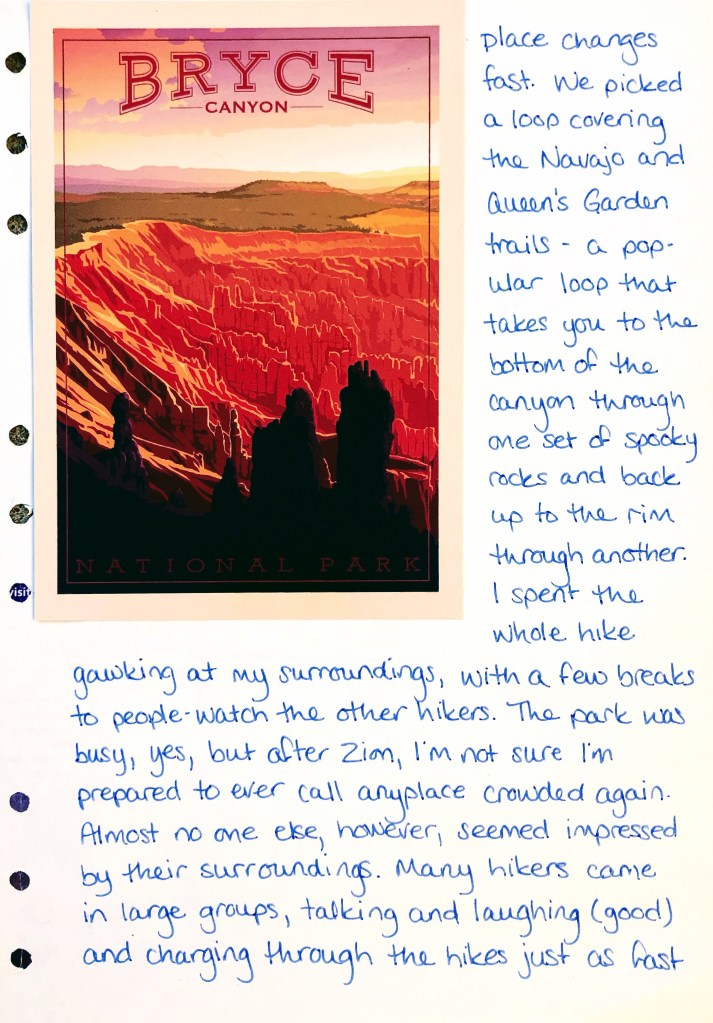 BRYCE
CANYON
NATIONAL PARK
place changes
fast. We picked
a loop covering
the Navajo and
Queen's Garden
trails - a pop-
ular loop that
takes you to the
bottom of the
canyon through
one set of spooky
rocks and back
up to the rim
through another.
I spent the
whole hike
gawking at my surroundings, with a few breaks
to people-watch the other hikers. The park was
busy, yes, but after Zion, I'm not sure I'm
prepared to ever call anyplace crowded again.
Almost no one else, however, seemed impressed
by their surroundings. Many hikers came
in large groups, talking and laughing (good)
and charging through the hikes just as fast
visit